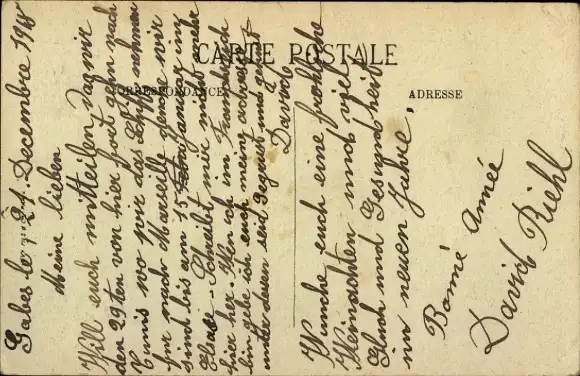 CARTE POSTALE
CORRESPONDANCE
ADRESSE
Gabes le 21. Decembre 1918
Meine lieben
Will euch mitteilen das wir
den 29ten von hier fort gehn nach
Tunis wo wir das Schiff nehmen
für nach Marseille denge wir
sind bis am 15 Januar in
Hause. Schreibt mir nicht mehr
hier her. Wen ich im Frankreich
bin gebe ich euch meine adresse
unter dessen seid gegrüst und geküst
David
Wunche euch eine fröhliche
Weinachten und viel
Gluck und Gesundheit
im neuen Jahre.
Bonne Année
David Riehl